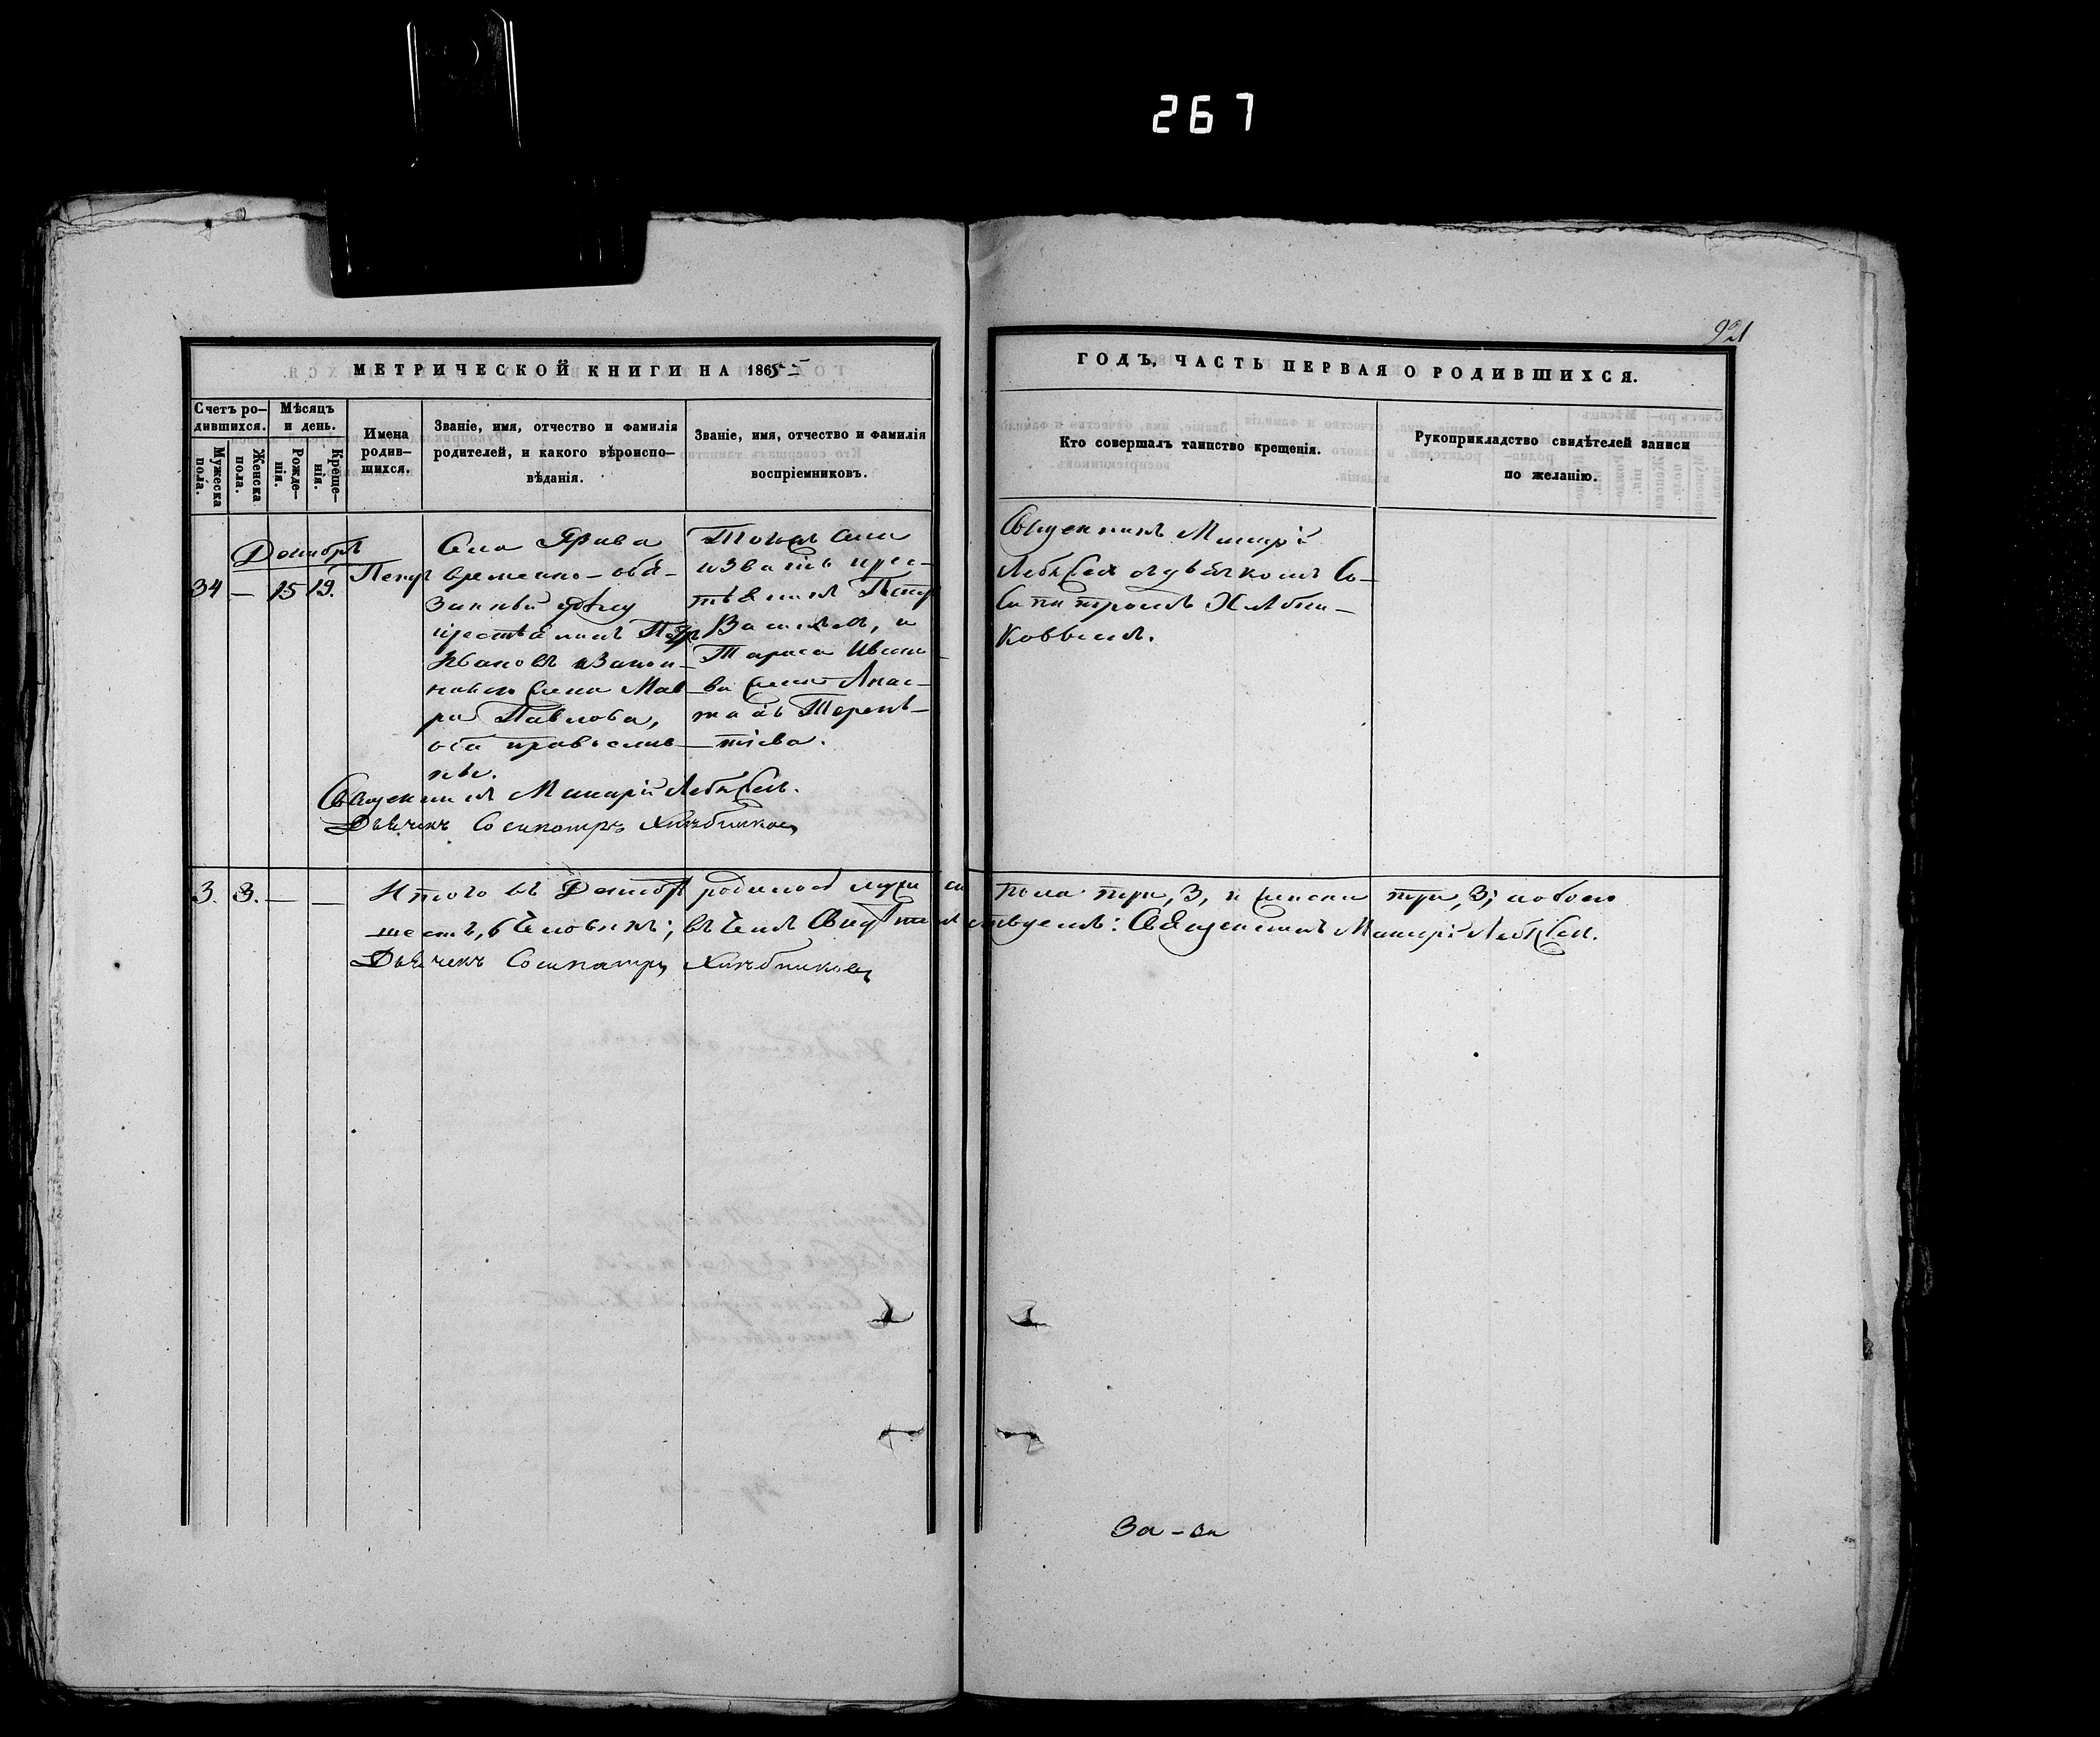 267
921
МЕТРИЧЕСКОЙ КНИГИ НА 1865
ГОДЪ, ЧАСТЬ ПЕРВАЯ О РОДИВШИХСЯ.
Счетъ ро-
дившихся.
Мужеска
пола.
Женска
пола.
Мѣсяцъ
и день.
Рожде-
нія.
Креще-
нія.
Имена
родив-
шихся.
Званіе, имя, отчество и фамилія
родителей, и какого вѣроиспо-
вѣданія.
Званіе, имя, отчество и фамилія
воспріемниковъ.
Кто совершалъ таинство крещенія.
Рукоприкладство свидѣтелей записи
по желанію.
Декабрь
34 — 15 19. Петръ
Села
временно-обя-
занный
крестьянинъ Петръ
Ивановъ и закон-
ная его жена Мав-
ра Павлова,
оба православ-
ны.
Тогоже села
крес-
тьянинъ Петръ
и
Тараса Ивано-
ва жена Анас-
тасія Терень-
тіева.
Священникъ Макарій
съ дьячкомъ Со-
сипатромъ Хлѣбни-
ковымъ.
Священникъ Макарій
Дьячекъ Сосипатръ Хлѣбниковъ
3. 3. — — Итого въ Декабрѣ родилось мужеска пола три, 3, женска три, 3; обоего
шесть, 6 человѣкъ; въ чемъ свидѣтельствуемъ: Священникъ Макарій
Дьячекъ Сосипатръ Хлѣбниковъ
За-